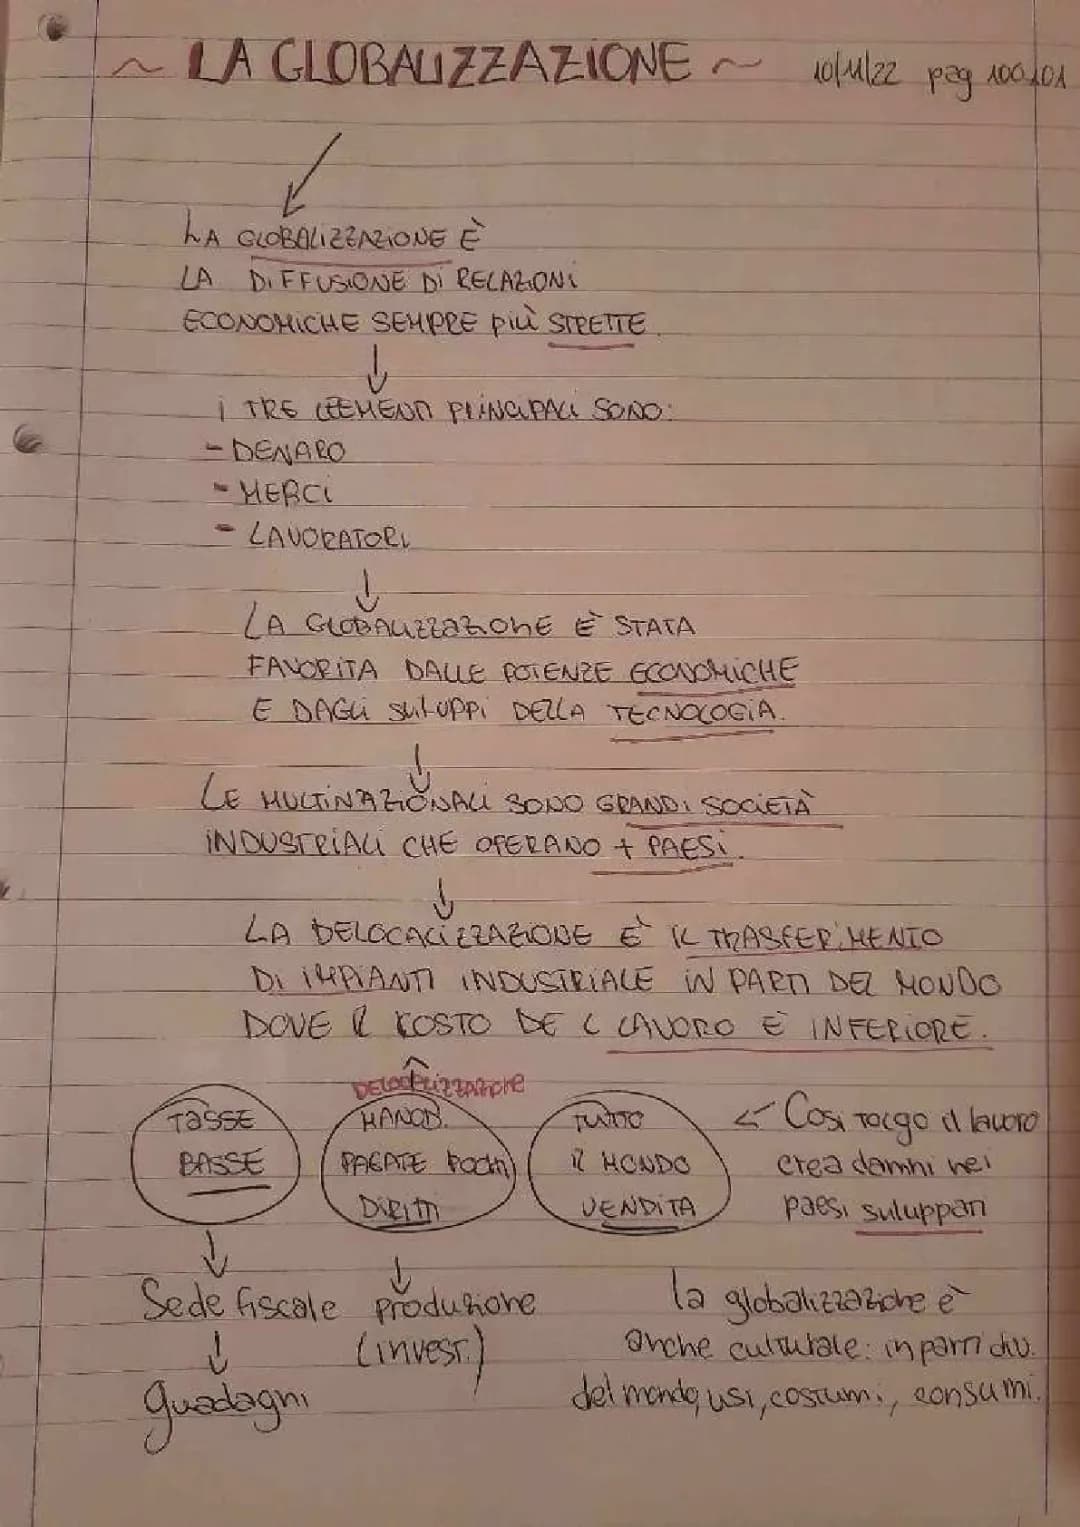 ~ LA GLOBALIZZAZIONE ~ 10/11/22 pag 100,101
LA GLOBALIZZAZIONE È
LA DIFFUSIONE DI RELAZIONI
ECONOMICHE SEMPRE più STRETTE.
I TRE ELEMENTI PRINCIPALI SONO:
- DENARO
- MERCI
- LAVORATORI
LA GLOBALIZZAZIONE È STATA
FAVORITA DALLE POTENZE ECONOMICHE
E DAGLI SVILUPPI DELLA TECNOLOGIA.
LE MULTINAZIONALI SONO GRANDI SOCIETÀ
INDUSTRIALI CHE OPERANO + PAESI.
LA DELOCALIZZAZIONE È IL TRASFERIMENTO
DI IMPIANTI INDUSTRIALE IN PARTI DEL MONDO
DOVE IL COSTO DEL LAVORO È INFERIORE.
DELOCALIZZAZIONE
TASSE
BASSE
MANOD.
PAGATE POCHI
DIRITTI
TUTTO
IL MONDO
VENDITA
← Così tolgo il lavoro
crea danni nei
paesi sviluppati
Sede fiscale
guadagni
produzione
(invest.)
la globalizzazione è
anche culturale: in parti div.
del mondo, usi, costumi, consumi.